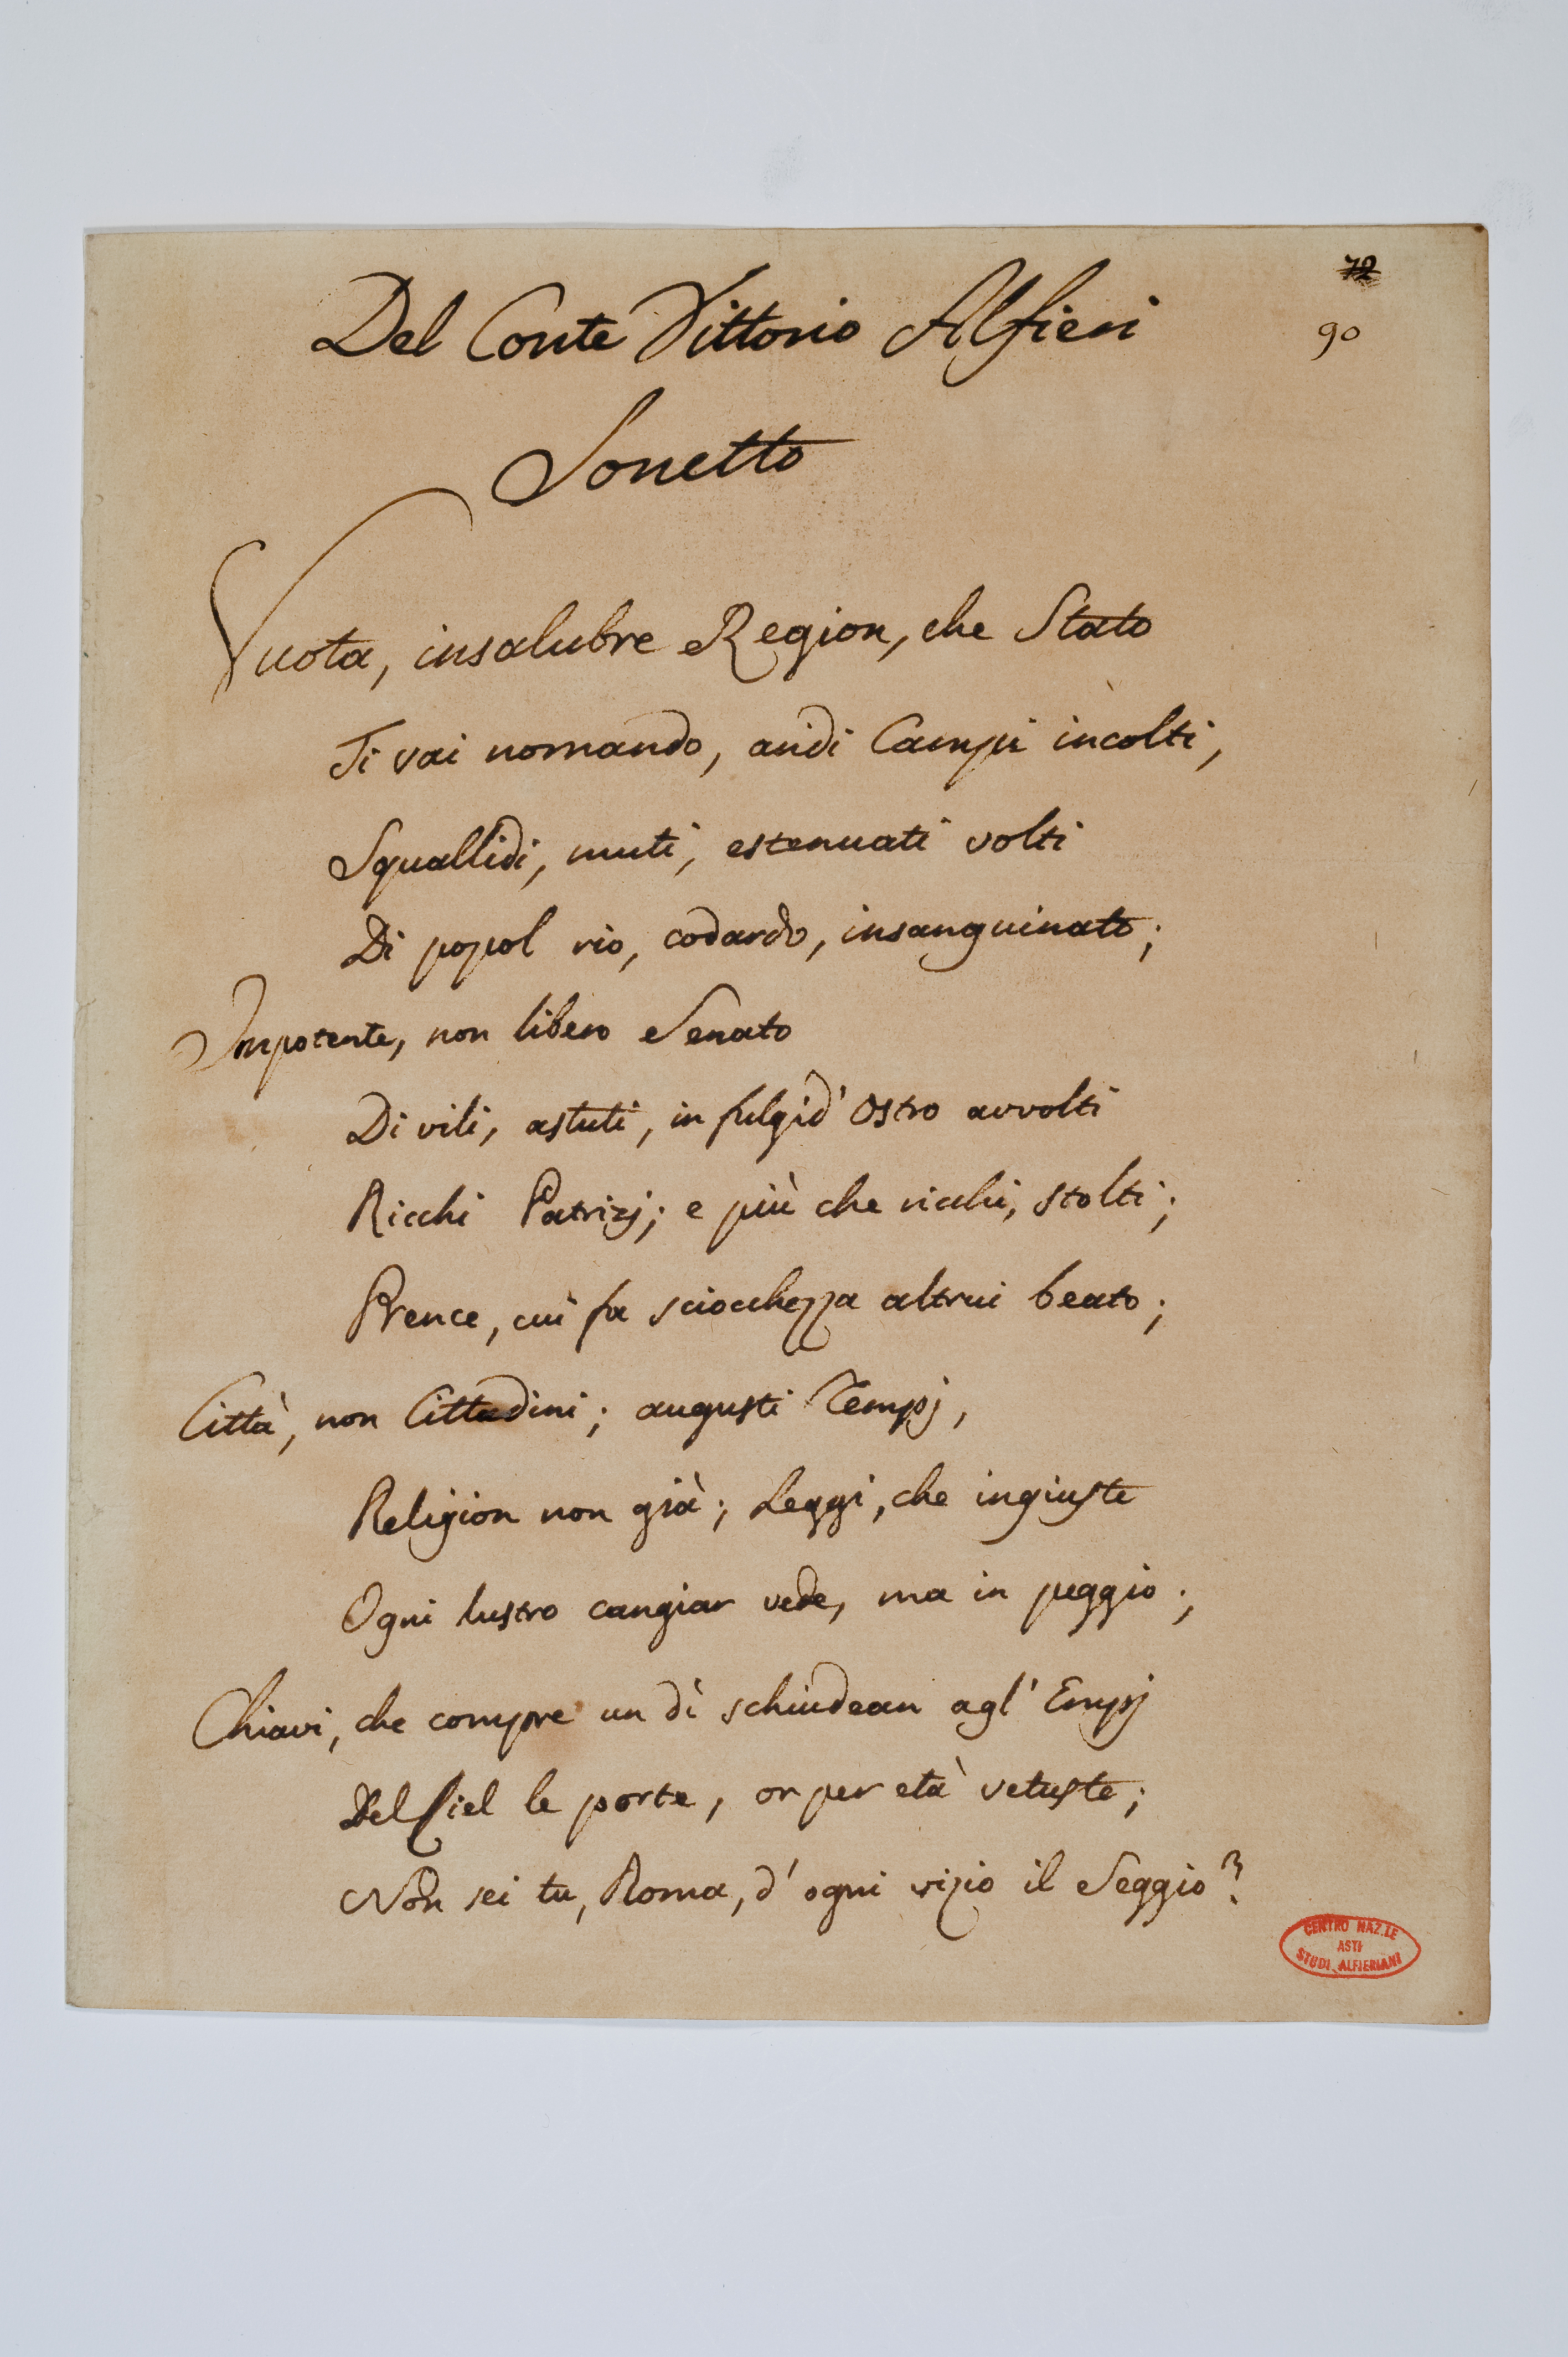 72
Del Conte Vittorio Alfieri
90
Sonetto
Vuota, insalubre Region, che Stato
Ti vai nomando, aridi Campi incolti,
Squallidi, muti, estenuati volti
Di popol rio, codardo, insanguinato;
Impotente, non libero Senato
Di vili, astuti, in fulgid' Ostro avvolti
Ricchi Patrizj; e più che ricchi, stolti;
Prence, cui fa sciocchezza altrui beato;
Città, non Cittadini; augusti Tempj,
Religion non già; Leggi, che ingiuste
Ogni lustro cangiar vede, ma in peggio;
Chiavi, che compre un dì schiudean agl' Empj
Del Ciel le porte, or per età vetuste;
Non sei tu, Roma, d' ogni vizio il Seggio?
CENTRO NAZ.LE
ASTI
STUDI ALFIERIANI